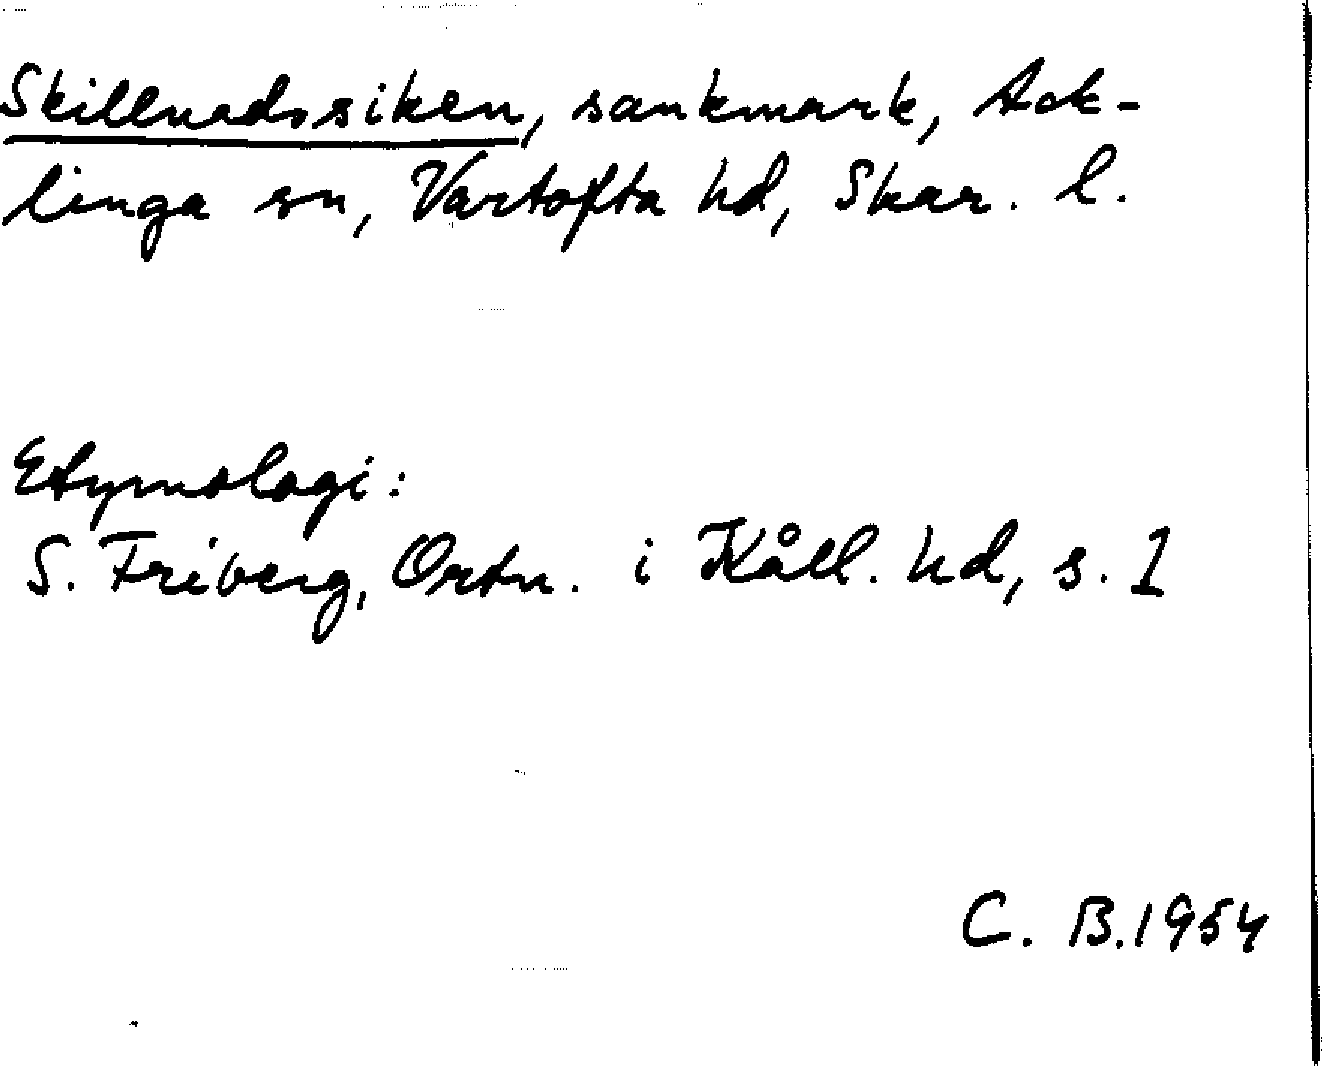 Skillnadssiken, sankmark, Ack-
linga sn, Vartofta hd, Skar. l.
Etymologi:
S. Friberg, Ortn. i Kåll. hd, s. 1
C. B. 1954